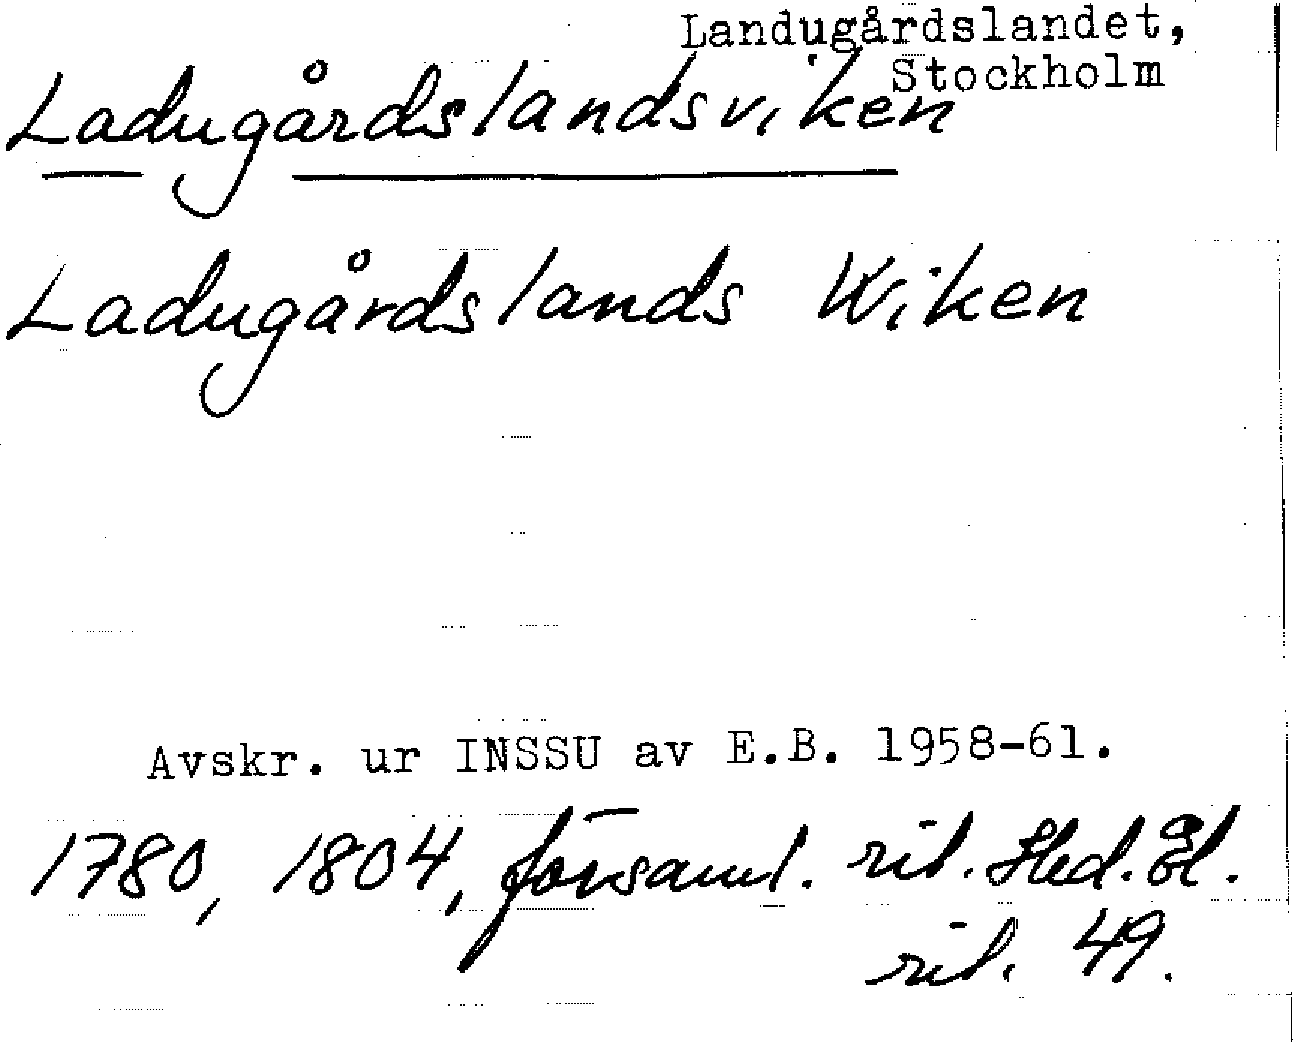 Landugårdslandet,
Stockholm
Ladugårdslandsviken
Ladugårdslands Wiken
Avskr. ur INSSU av E.B. 1958-61.
1780, 1804, församl. rit. Hed. Öl.
rit. 49.